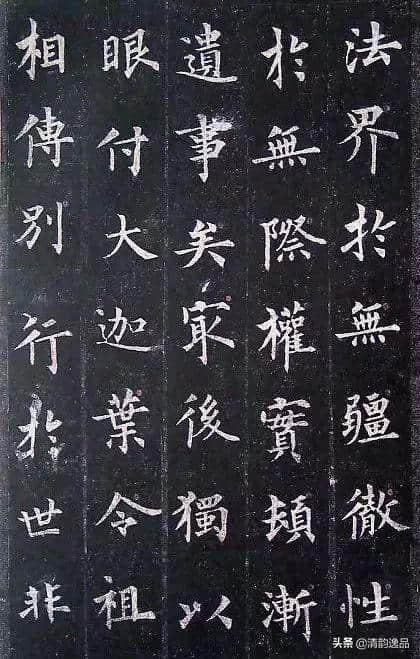 法界於無疆徹性
於無際權實頓漸
遺事矣㝡後獨以
眼付大迦葉令祖
相傳別行於世非
头条 @清韵逸品